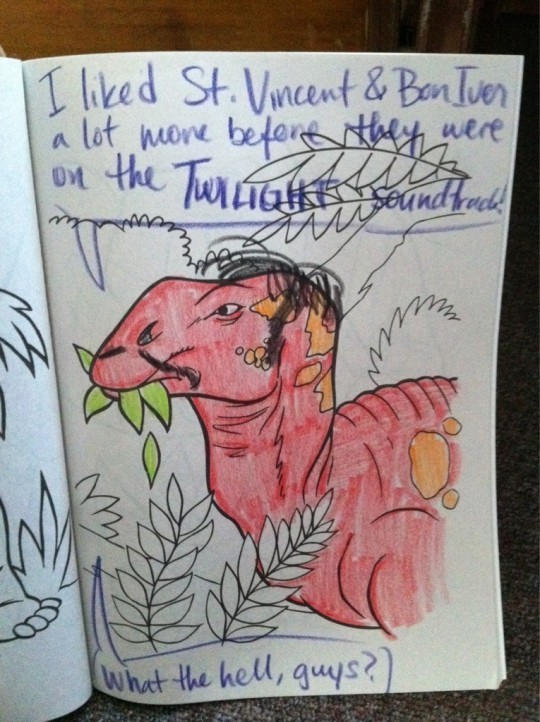 I liked St. Vincent & Bon Iver
a lot more before they were
on the TWILIGHT soundtrack!
(What the hell, guys?)